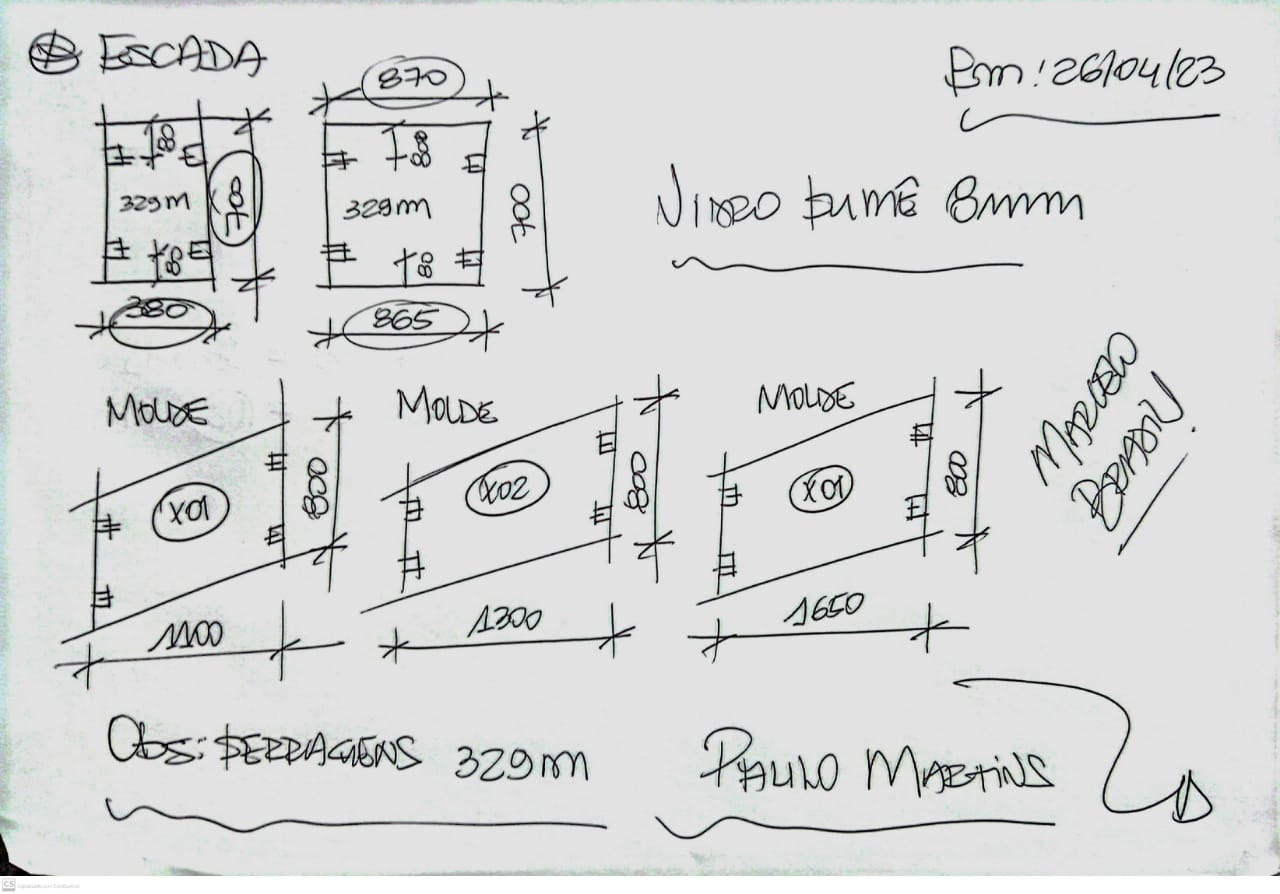 ESCADA
Em: 26/04/23
870
80
800
329M
700
329M
700
80
80
380
865
VIDRO FUMÊ 8mm
MOLDE
MOLDE
MOLDE
X01
800
X02
800
X01
800
1100
1300
1650
MARCELO
Obs: FERRAGENS 329M
PAULO MARTINS
CS Digitalizado com CamScanner